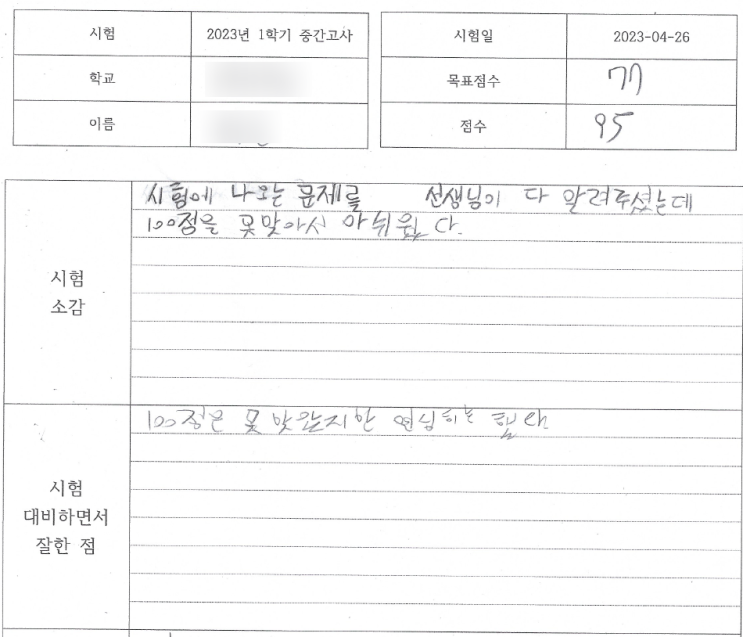 시험 2023년 1학기 중간고사 시험일 2023-04-26
학교 목표점수 77
이름 점수 95
시험에 나오는 문제를 선생님이 다 알려주셨는데
100점을 못맞아서 아쉬웠다.
시험
소감
100점은 못 맞았지만 열심히는 했다
시험
대비하면서
잘한 점